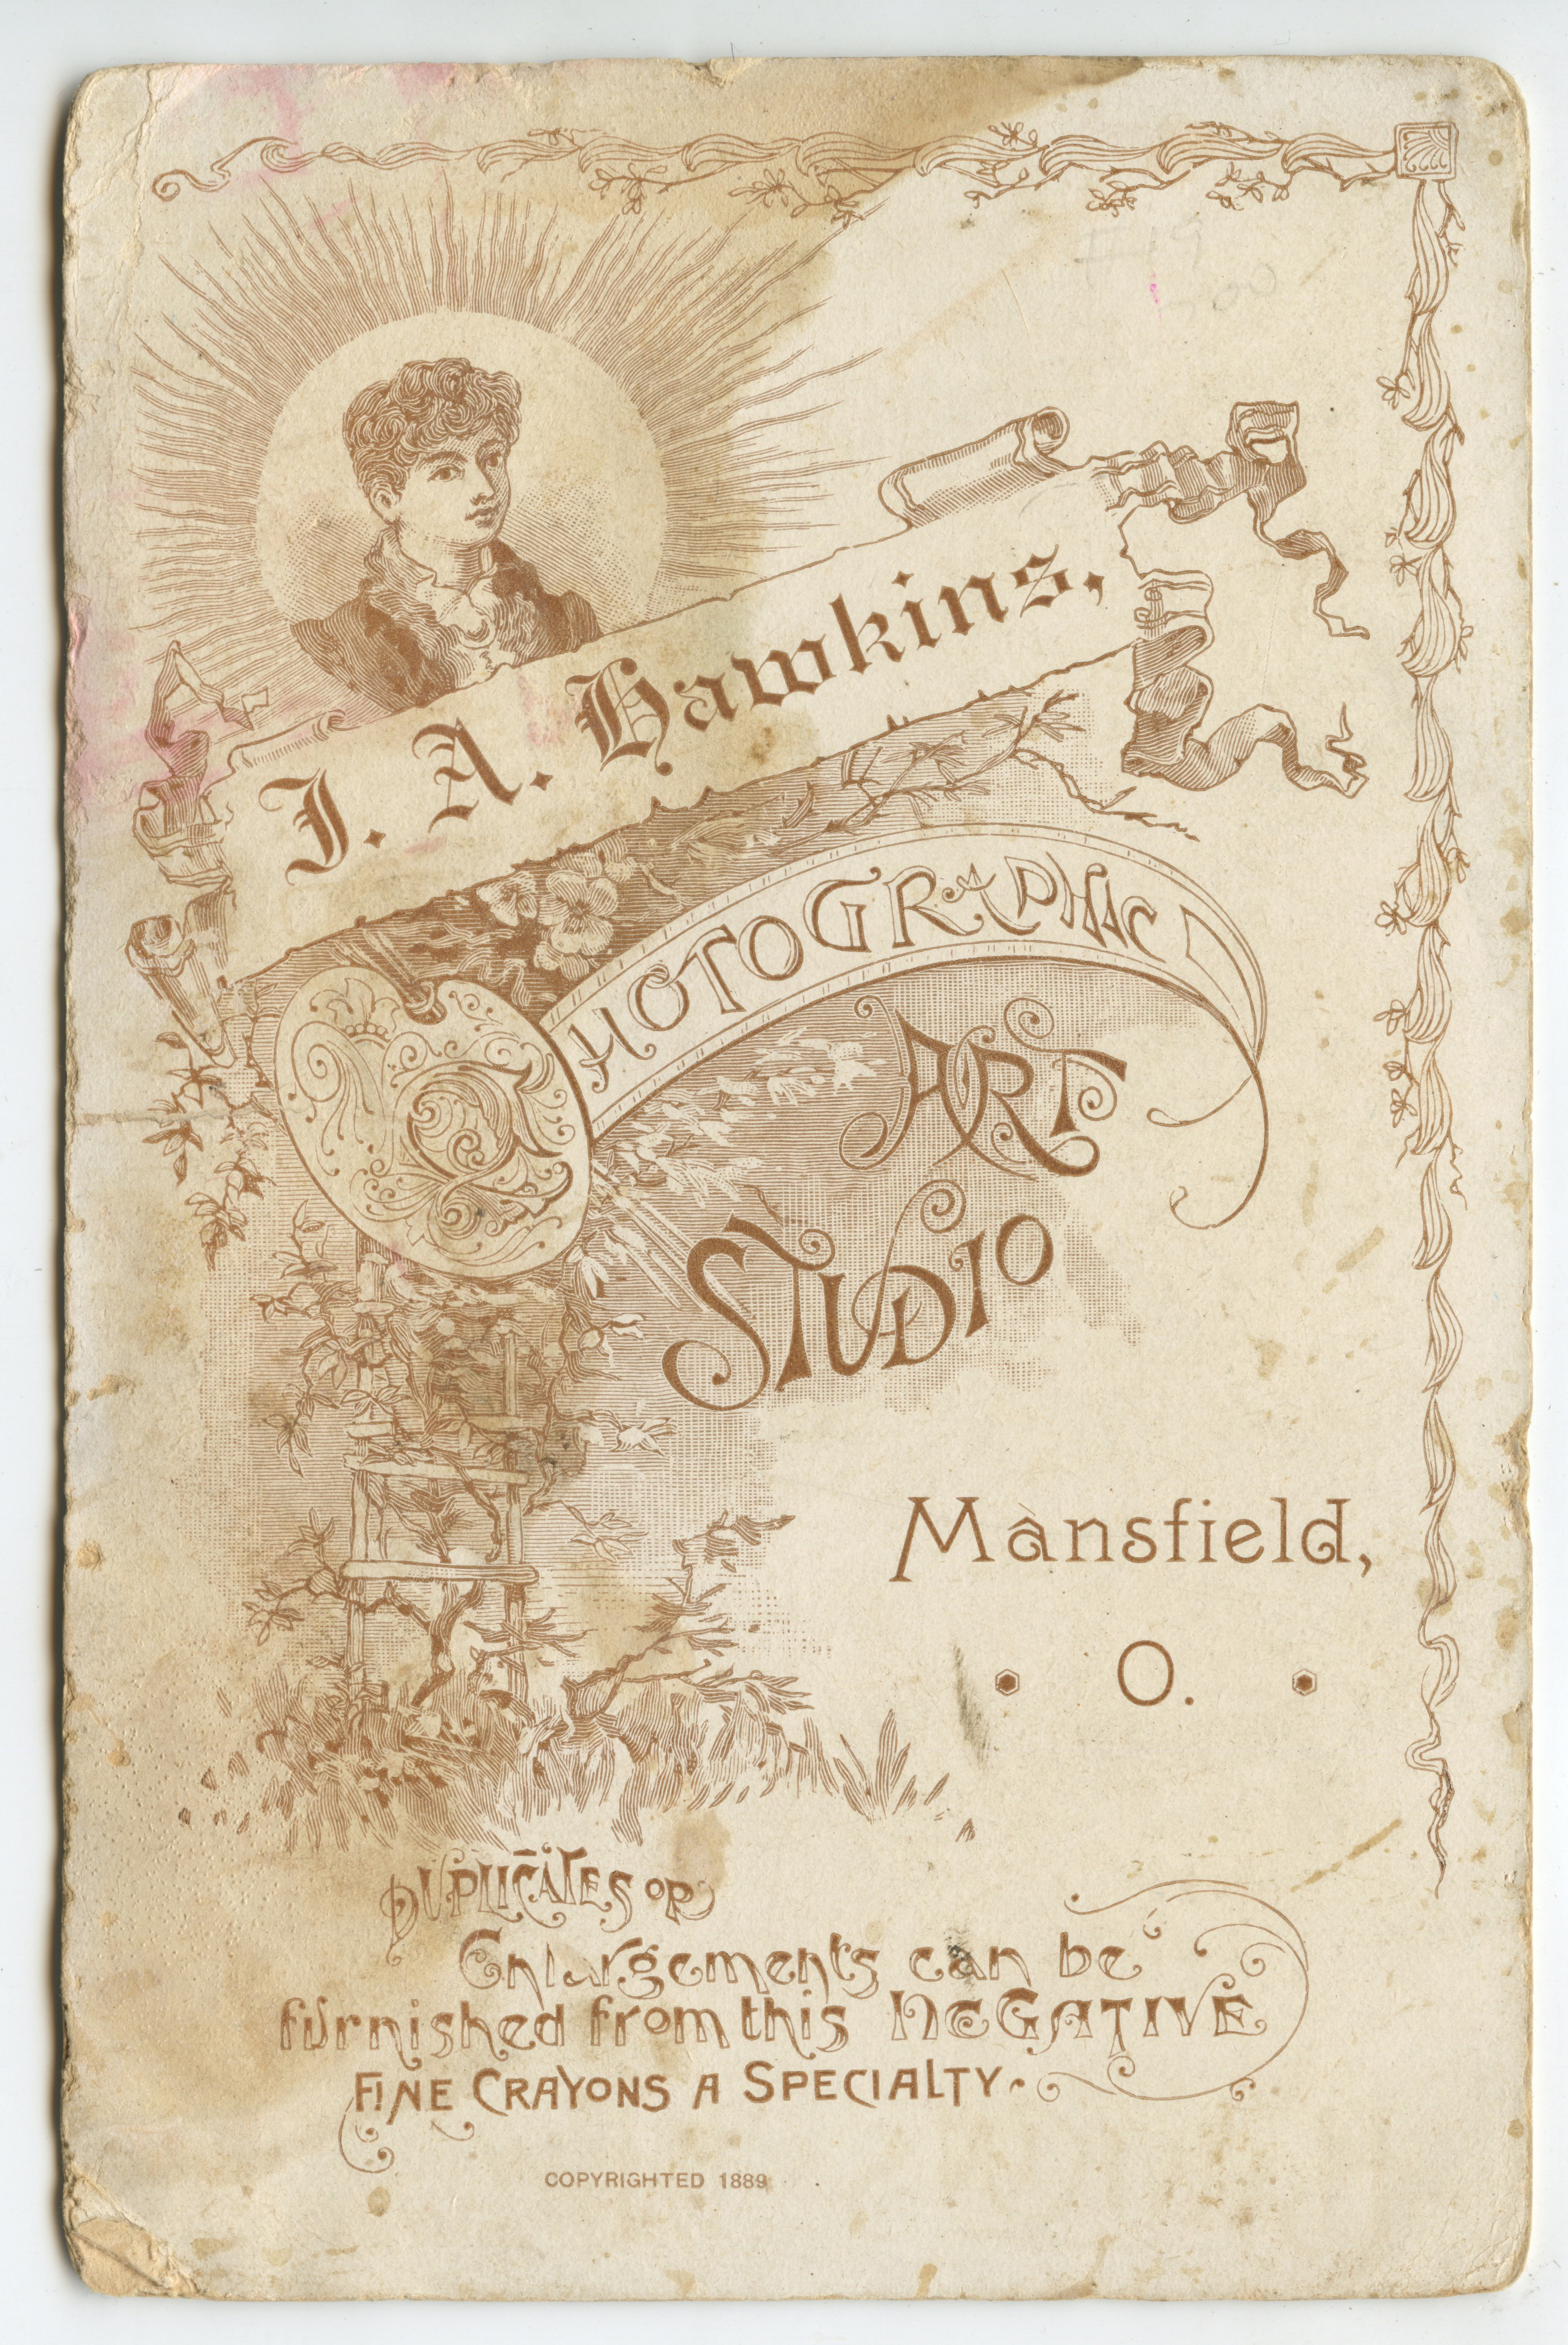 J. A. Hawkins,
PHOTOGRAPHIC
ART
STUDIO
Mansfield,
O.
DUPLICATES OR
Enlargements can be
furnished from this NEGATIVE
FINE CRAYONS A SPECIALTY.
COPYRIGHTED 1889